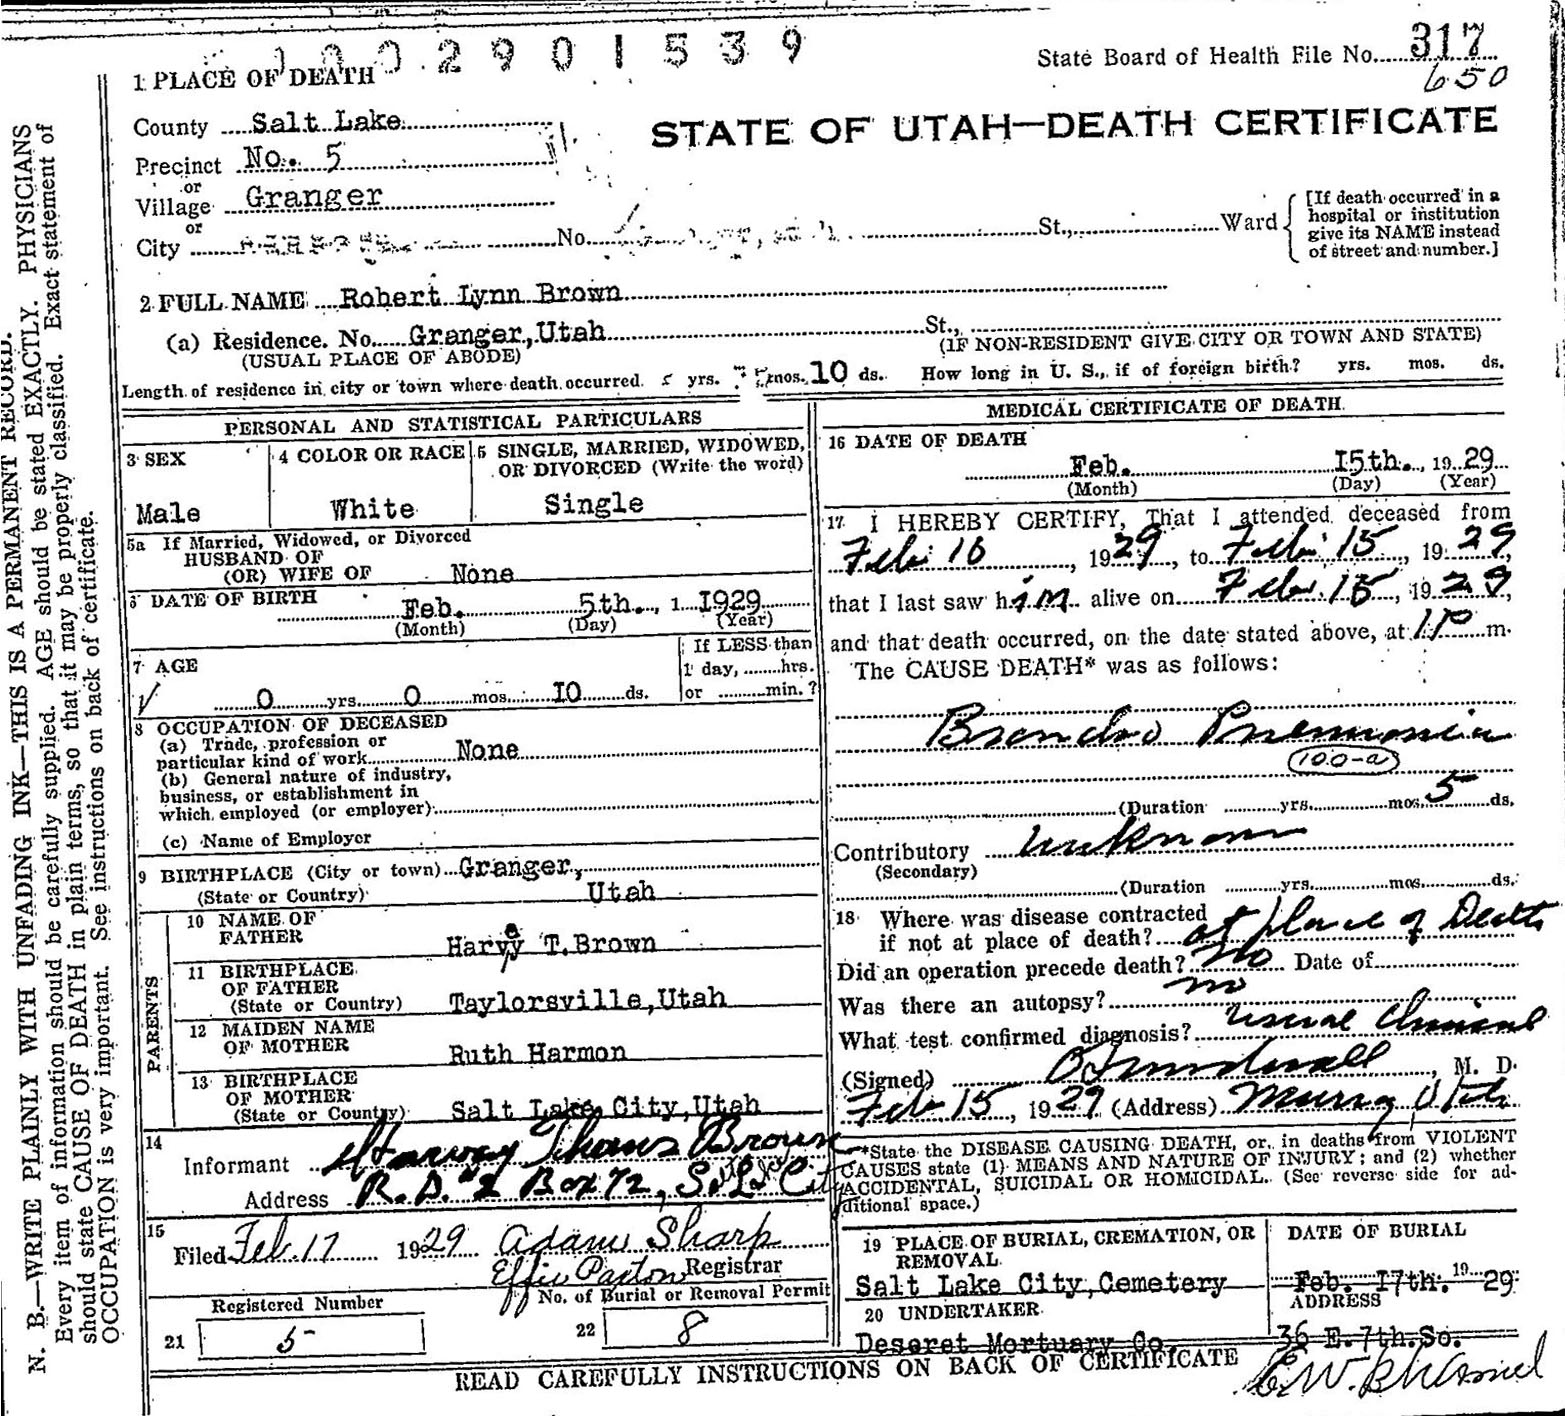 1002901539
State Board of Health File No. 317
650
1 PLACE OF DEATH
County Salt Lake
STATE OF UTAH—DEATH CERTIFICATE
Precinct No. 5
or
Village Granger
or
City No. St., Ward
[If death occurred in a
hospital or institution
give its NAME instead
of street and number.]
2 FULL NAME Robert Lynn Brown
(a) Residence. No. Granger, Utah St.,
(USUAL PLACE OF ABODE) (IF NON-RESIDENT GIVE CITY OR TOWN AND STATE)
Length of residence in city or town where death occurred yrs. mos. 10 ds. How long in U. S., if of foreign birth? yrs. mos. ds.
PERSONAL AND STATISTICAL PARTICULARS
3 SEX
Male
4 COLOR OR RACE
White
5 SINGLE, MARRIED, WIDOWED,
OR DIVORCED (Write the word)
Single
5a If Married, Widowed, or Divorced
HUSBAND OF
(OR) WIFE OF None
6 DATE OF BIRTH Feb. 5th., 1 1929
(Month) (Day) (Year)
7 AGE
0 yrs. 0 mos. I0 ds.
If LESS than
1 day, hrs.
or min.?
8 OCCUPATION OF DECEASED
(a) Trade, profession or
particular kind of work None
(b) General nature of industry,
business, or establishment in
which employed (or employer)
(c) Name of Employer
9 BIRTHPLACE (City or town) Granger,
(State or Country) Utah
PARENTS
10 NAME OF
FATHER Harvey T. Brown
11 BIRTHPLACE
OF FATHER
(State or Country) Taylorsville, Utah
12 MAIDEN NAME
OF MOTHER Ruth Harmon
13 BIRTHPLACE
OF MOTHER
(State or County) Salt Lake City, Utah
14
Informant Harvey Thomas Brown
Address R. D. #2 Box 72, S. L. City
15
Filed Feb. 17 1929 Adam Sharp
Effie Paxton Registrar
Registered Number
21 5
No. of Burial or Removal Permit
22 8
MEDICAL CERTIFICATE OF DEATH
16 DATE OF DEATH
Feb. I5th., 19 29
(Month) (Day) (Year)
17 I HEREBY CERTIFY, That I attended deceased from
Feb. 10, 1929, to Feb. 15, 1929,
that I last saw him alive on Feb. 15, 1929,
and that death occurred, on the date stated above, at 11 P m.
The CAUSE DEATH* was as follows:
Broncho Pneumonia
100-a
(Duration yrs. mos. 5 ds.
Contributory unknown
(Secondary)
(Duration yrs. mos. ds.
18 Where was disease contracted
if not at place of death? at place of Death
Did an operation precede death? no Date of
Was there an autopsy? no
What test confirmed diagnosis? usual Clinical
(Signed) O Sundwall, M. D.
Feb 15, 1929 (Address) Murray, Utah
*State the DISEASE CAUSING DEATH, or, in deaths from VIOLENT
CAUSES state (1) MEANS AND NATURE OF INJURY; and (2) whether
ACCIDENTAL, SUICIDAL OR HOMICIDAL. (See reverse side for ad-
ditional space.)
19 PLACE OF BURIAL, CREMATION, OR
REMOVAL
Salt Lake City, Cemetery
DATE OF BURIAL
Feb. I7th. 19 29
20 UNDERTAKER
Deseret Mortuary Co.
ADDRESS
36 E. 7th. So.
READ CAREFULLY INSTRUCTIONS ON BACK OF CERTIFICATE
N. B.—WRITE PLAINLY WITH UNFADING INK—THIS IS A PERMANENT RECORD.
Every item of information should be carefully supplied. AGE should be stated EXACTLY. PHYSICIANS
should state CAUSE OF DEATH in plain terms, so that it may be properly classified. Exact statement of
OCCUPATION is very important. See instructions on back of certificate.